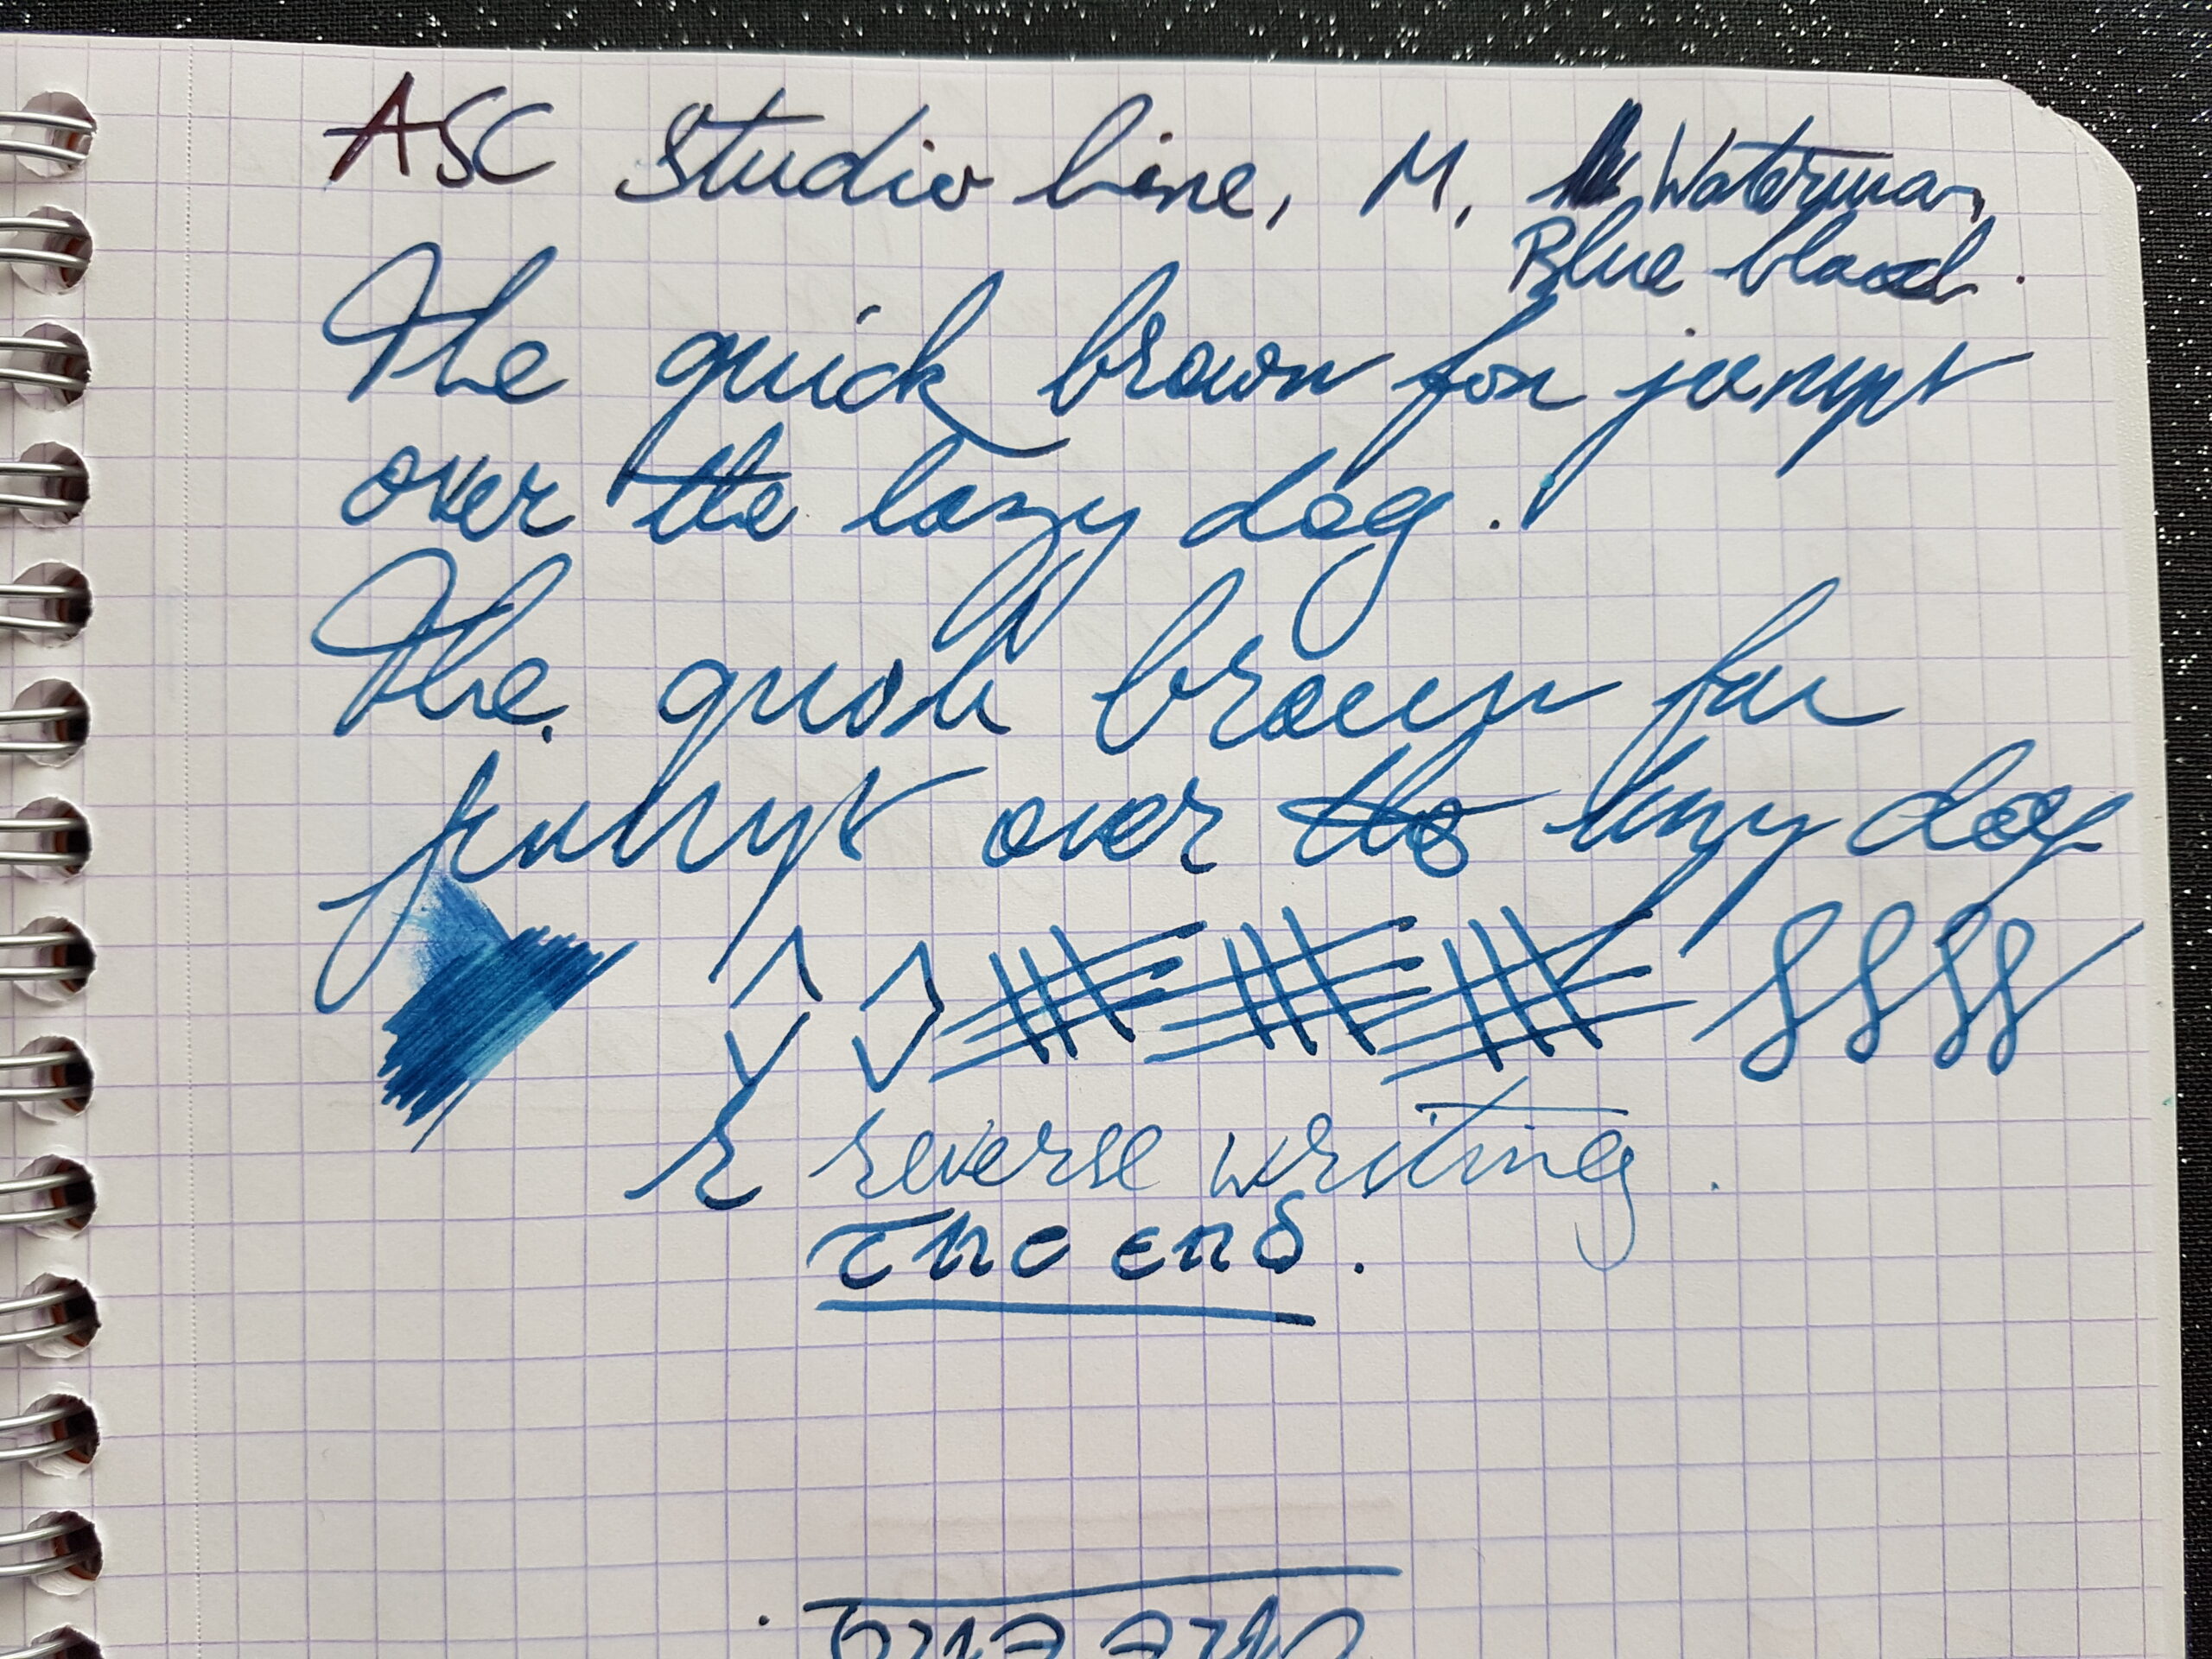 ASC Studio Line, M, Waterman
Blue black.
The quick brown fox jumpt
over the lazy dog.
The quick brown fox
jumpt over the lazy dog
reverse writing.
The end.
The end.